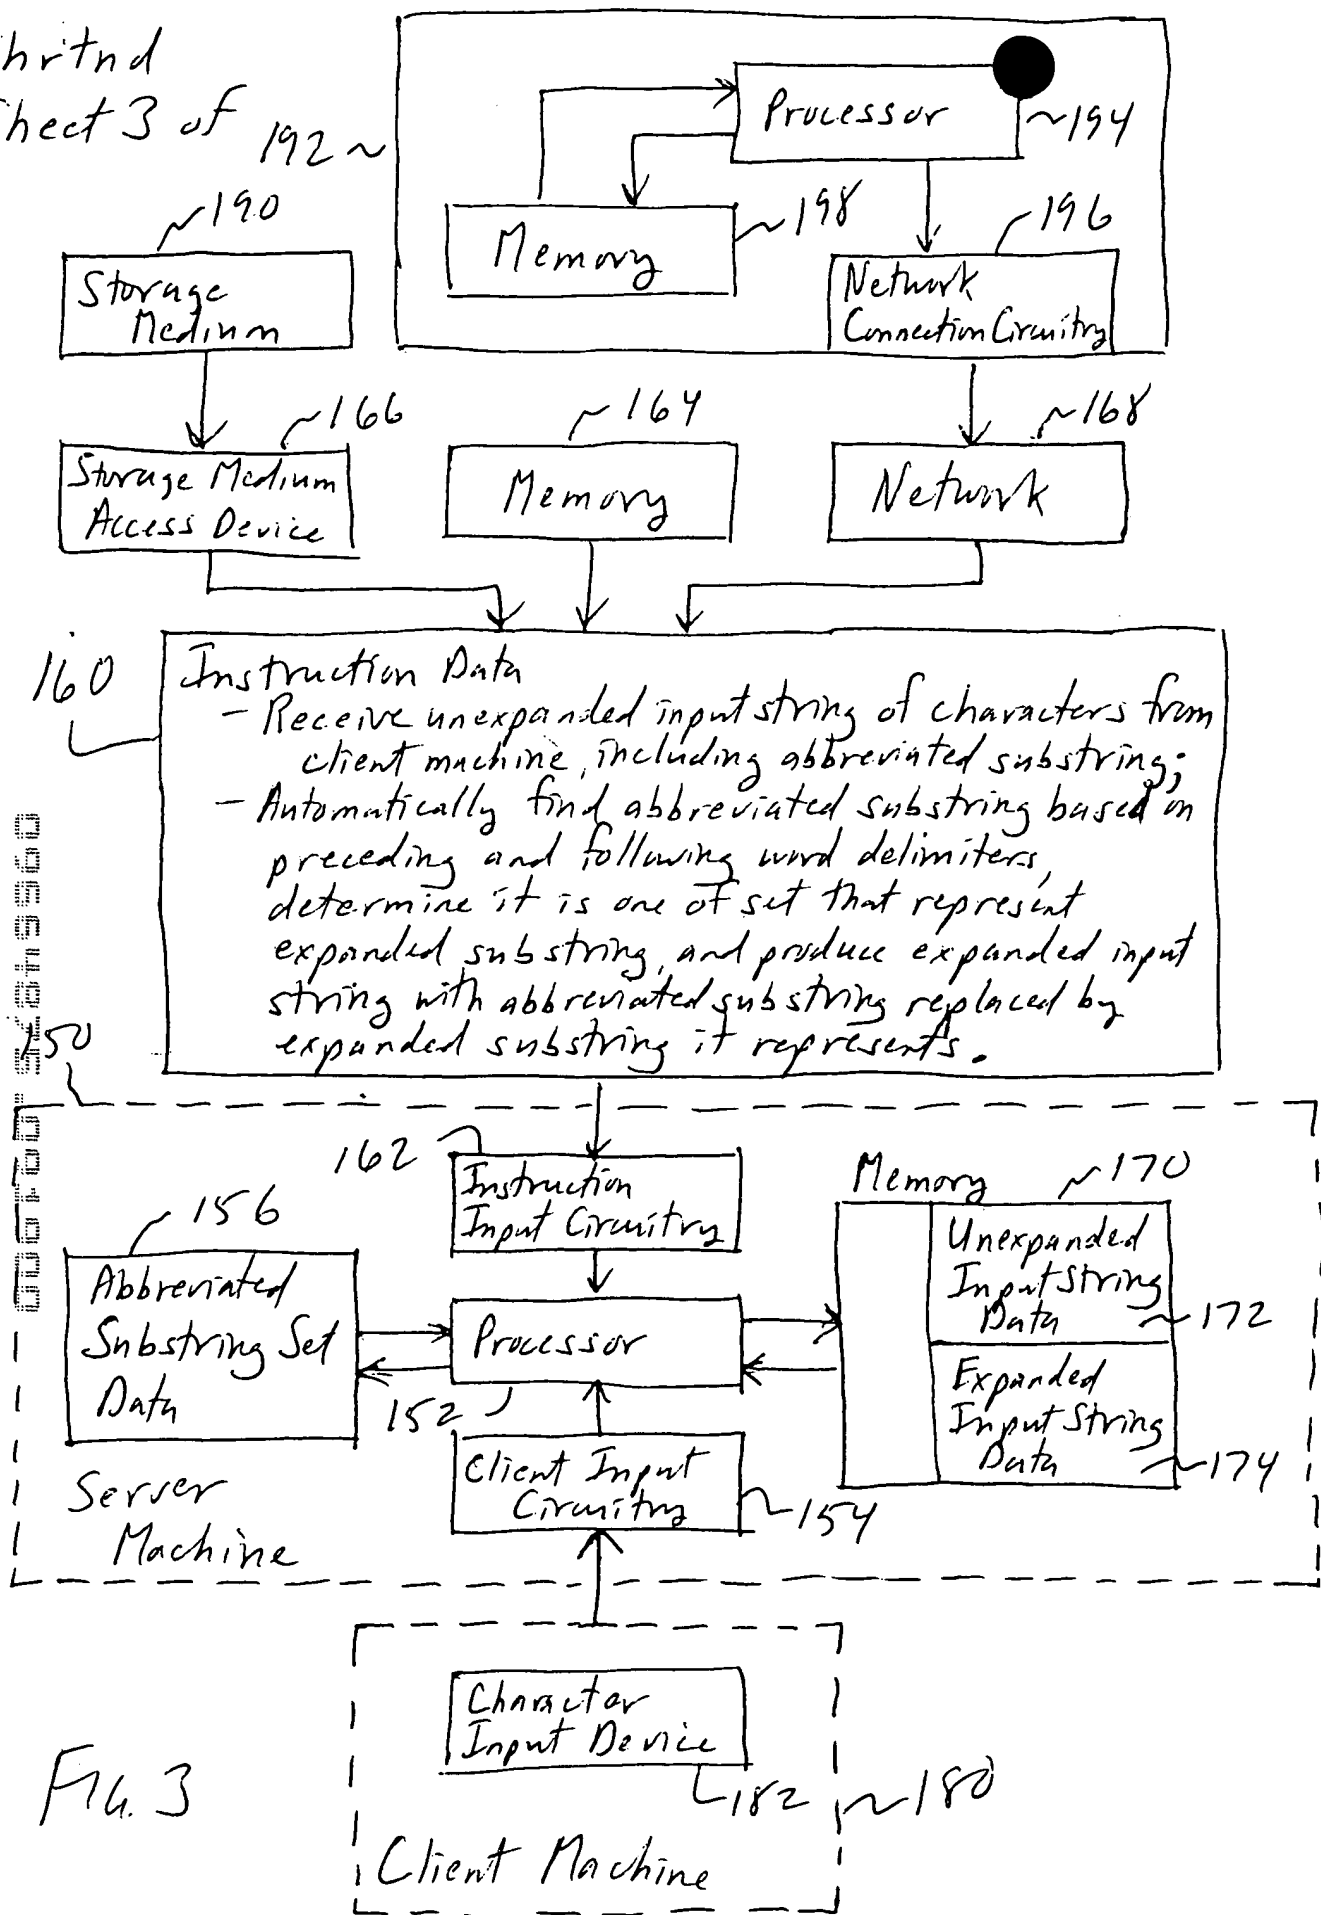 Sheet 3 of
192
Processor
194
190
Memory
198
196
Storage
Medium
Network
Connection Circuitry
166
164
168
Storage Medium
Access Device
Memory
Network
160
Instruction Data
- Receive unexpanded input string of characters from
client machine, including abbreviated substring;
- Automatically find abbreviated substring based on
preceding and following word delimiters,
determine it is one of set that represent
expanded substring, and produce expanded input
string with abbreviated substring replaced by
expanded substring it represents.
150
162
Instruction
Input Circuitry
Memory
170
156
Unexpanded
Input String
Data
172
Abbreviated
Substring Set
Data
Processor
152
Expanded
Input String
Data
174
Client Input
Circuitry
154
Server
Machine
Character
Input Device
182
180
FIG. 3
Client Machine